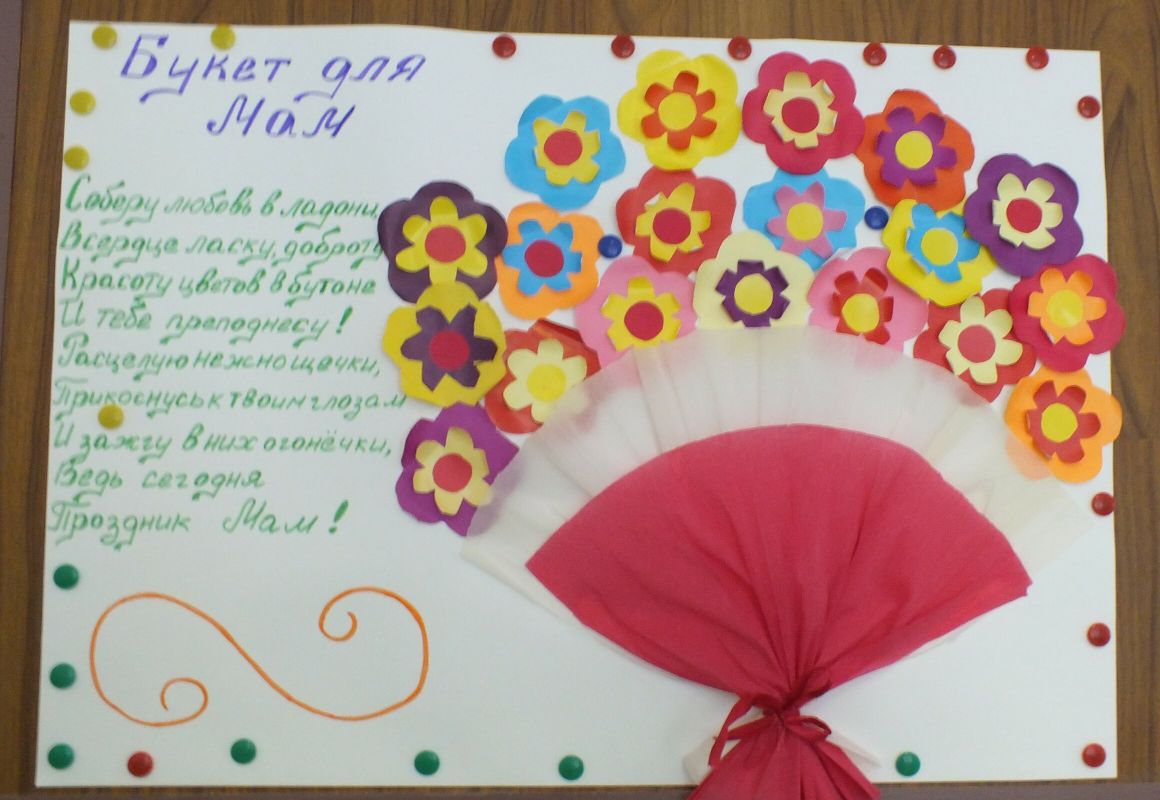 Букет для
Мам
Соберу любовь в ладони,
В сердце ласку, доброту
Красоту цветов в бутоне
И тебе преподнесу!
Расцелую нежно щечки,
Прикоснусь к твоим глазам
И зажгу в них огонёчки,
Ведь сегодня
Праздник Мам!